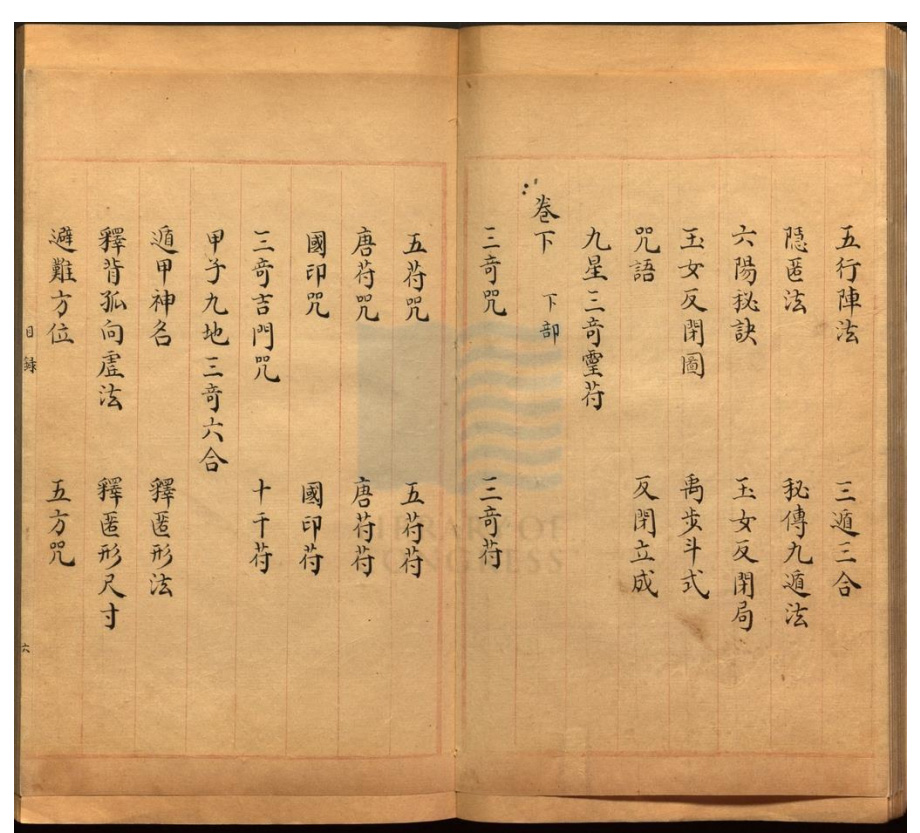 五行陣法　三遁三合
隱匿法　秘傳九遁法
六陽秘訣　玉女反閉局
玉女反閉圖　禹步斗式
咒語　反閉立成
九星三奇靈符
卷下　下部
三奇咒　三奇符
五符咒　五符符
唐符咒　唐符符
國印咒　國印符
三奇吉門咒　十干符
甲子九地三奇六合
遁甲神名　釋匿形法
釋背孤向虛法　釋匿形尺寸
避難方位　五方咒
目錄　六
LIBRARY OF
CONGRESS